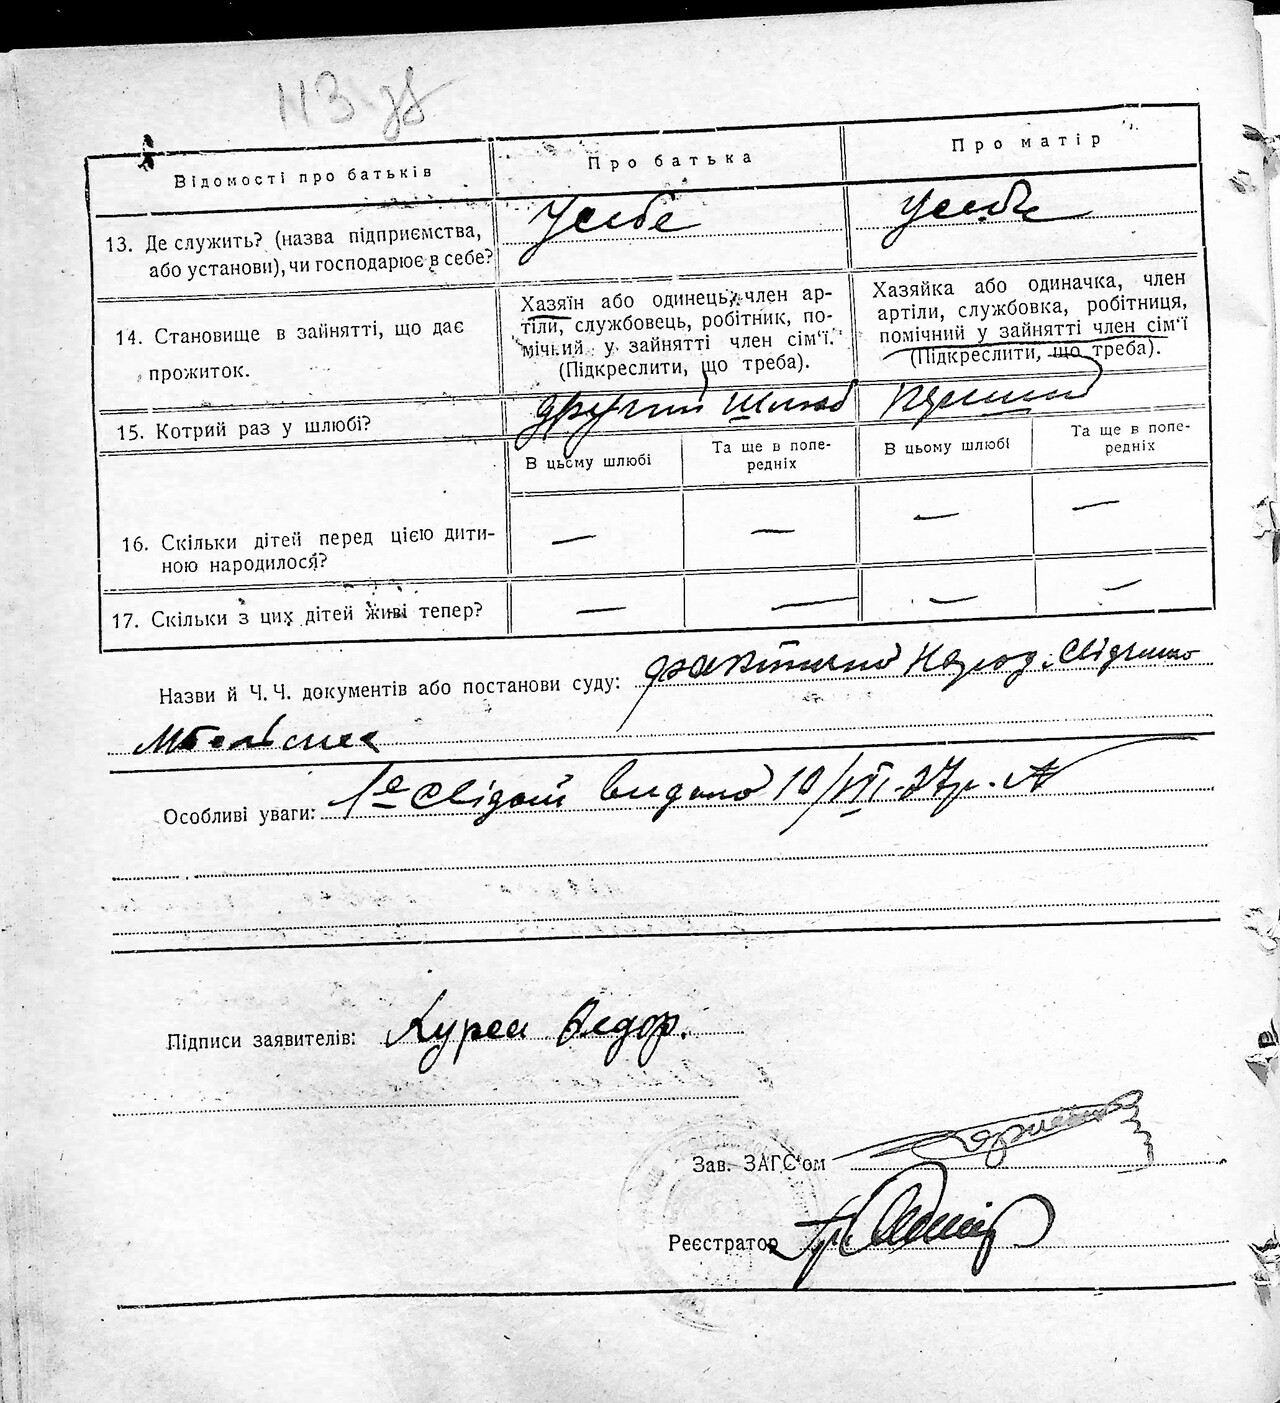 113 зв
Відомості про батьків
Про батька
Про матір
13. Де служить? (назва підприємства,
або установи), чи господарює в себе?
У себе
У себе
14. Становище в зайнятті, що дає
прожиток.
Хазяїн або одинець, член ар-
тіли, службовець, робітник, по-
мічний у зайнятті член сім'ї.
(Підкреслити, що треба).
Хазяйка або одиначка, член
артіли, службовка, робітниця,
помічний у зайнятті член сім'ї
(Підкреслити, що треба).
15. Котрий раз у шлюбі?
другий шлюб
перший
В цьому шлюбі
Та ще в попе-
редніх
В цьому шлюбі
Та ще в попе-
редніх
16. Скільки дітей перед цією дити-
ною народилося?
— — — —
17. Скільки з цих дітей живі тепер?
— — — —
Назви й Ч. Ч. документів або постанови суду: фактично народ.
Особливі уваги: видано 10/VII-27р.
Підписи заявителів: Федор.
Зав. ЗАГС'ом
Реєстратор